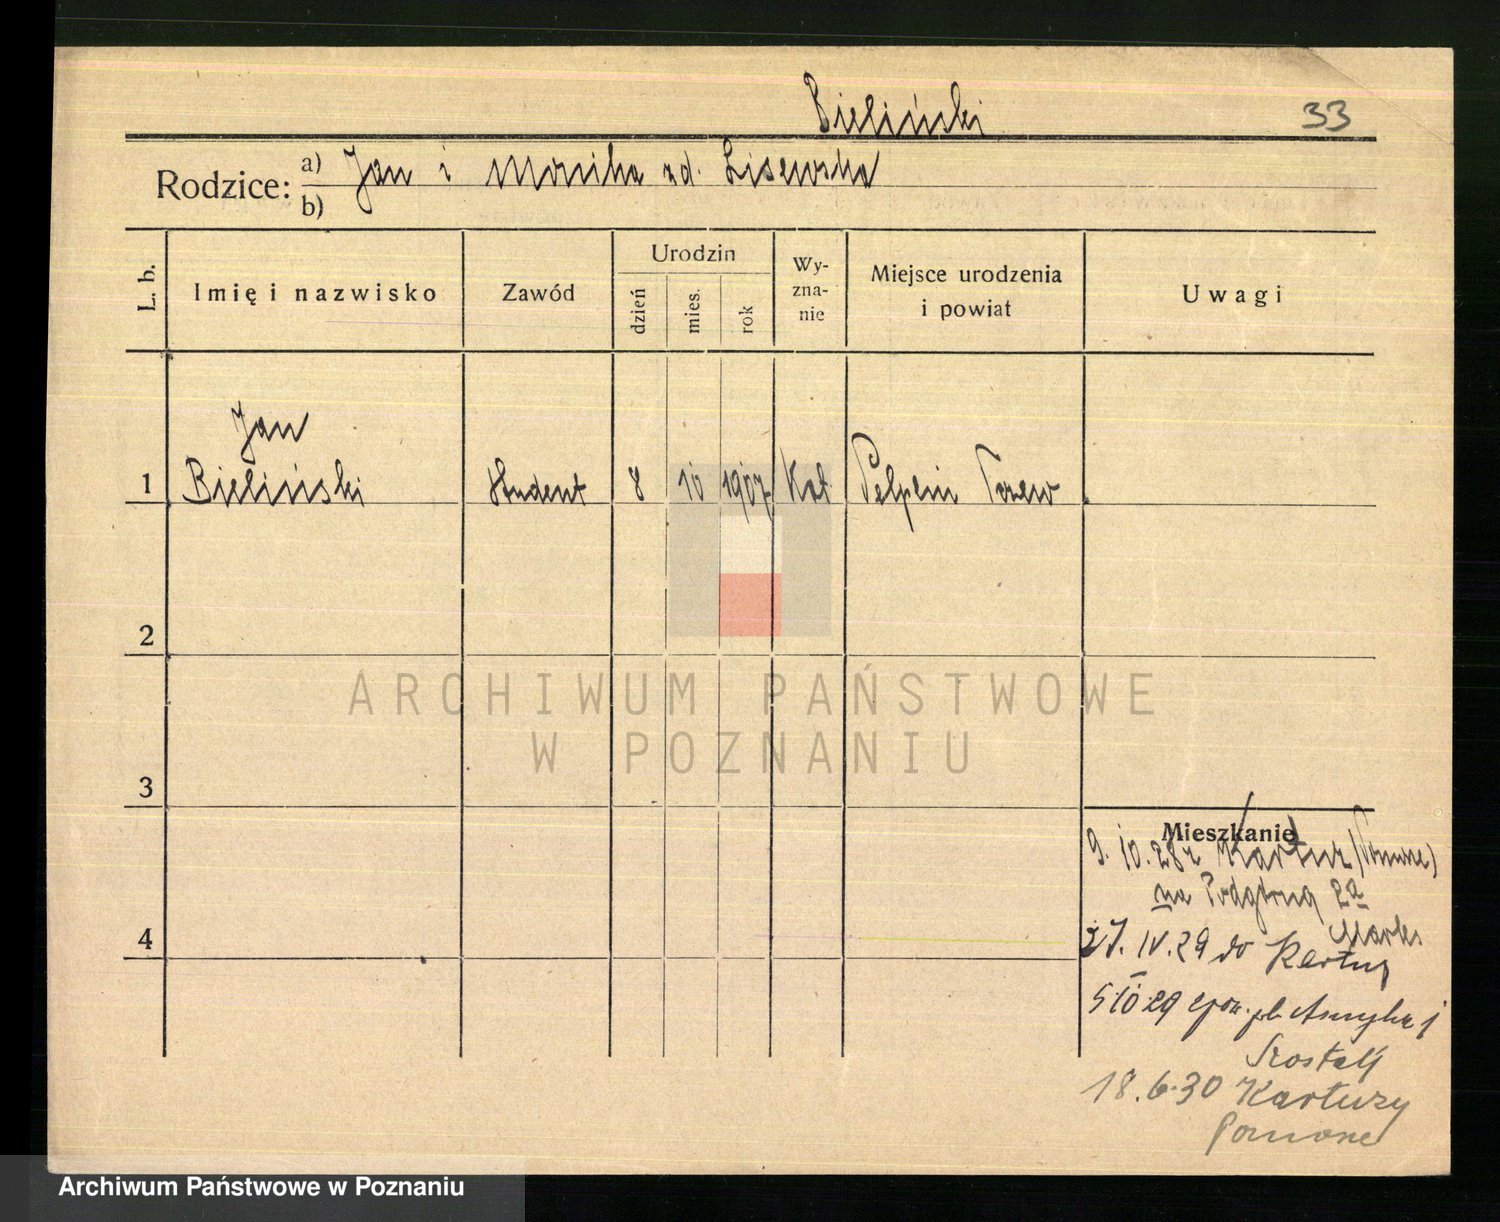 Bieliński 33
Rodzice: a) Jan i Monika zd. Lisewska
b)
L. b. Imię i nazwisko Zawód Urodzin dzień mies. rok Wy-zna-nie Miejsce urodzenia i powiat Uwagi
Jan
1 Bieliński student 8 10 1907 Kat Pelplin Tczew
2
3
4
Mieszkanie
9. 10. 28 z Kartuz
na Podgórną 2a
27. IV. 29 do Kartuz
5 10 29
18. 6. 30 Kartuzy
Pomorze
ARCHIWUM PAŃSTWOWE
W POZNANIU
Archiwum Państwowe w Poznaniu